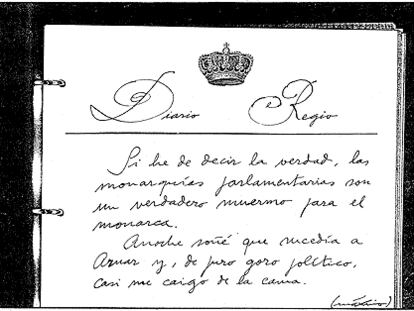 Diario Regio
Si he de decir la verdad, las
monarquías parlamentarias son
un verdadero muermo para el
monarca.
Anoche soñé que sucedía a
Aznar y, de puro gozo político,
casi me caigo de la cama.
(máximo)